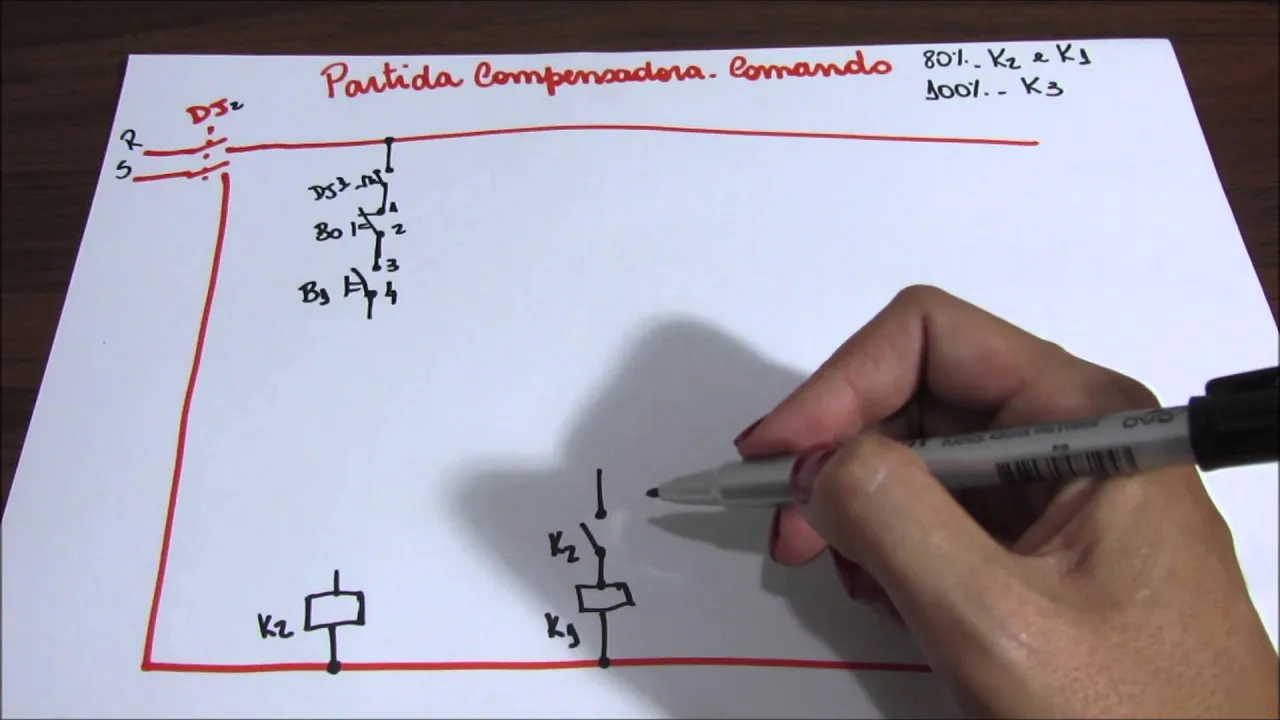 Partida Compensadora. Comando
80%. K2 e K1
100%. - K3
DJ2
R
S
DJ3
1
B0
2
3
B1
4
K2
K2
K1